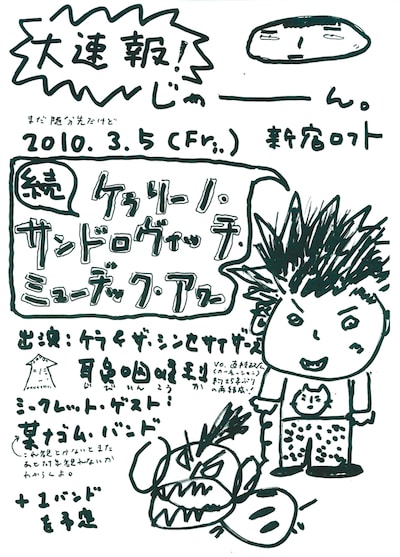 大速報!
じゃーーーん。
まだ随分先だけど
2010.3.5(Fri.) 新宿ロフト
続
ケラリーノ・
サンドロヴィッチ・
ミュージック・アワー
出演:ケラ&ザ・シンセサイザーズ
耳鼻咽喉科
じびいんこうか
シークレット・ゲスト
某ナゴム・バンド
これ観とかないとまた
あと10年観れないか
わからんよ。
+1バンド
を予定